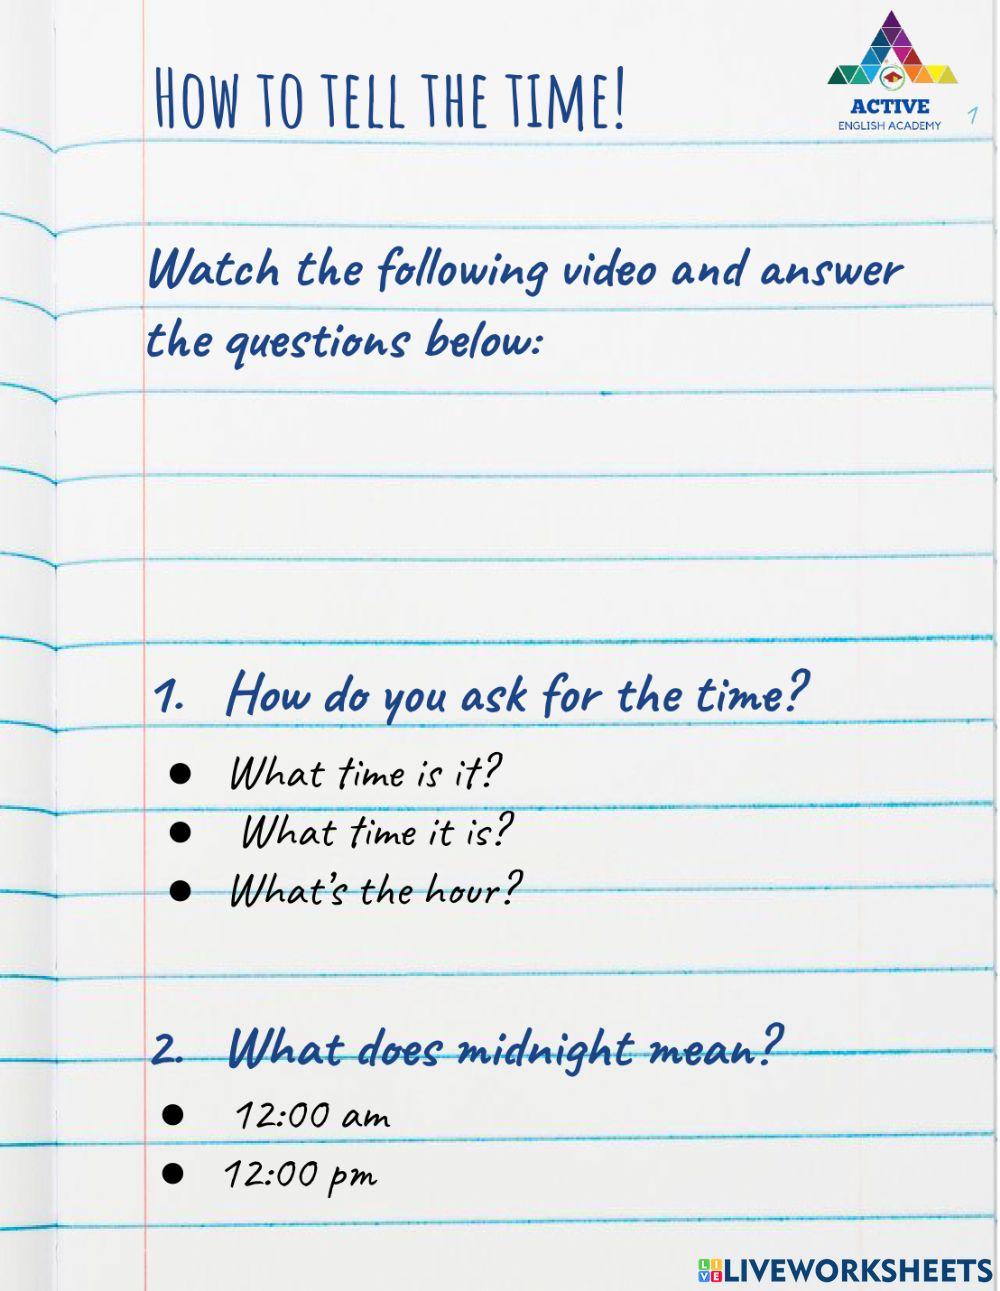 How to tell the time!
ACTIVE
ENGLISH ACADEMY
1
Watch the following video and answer
the questions below:
1. How do you ask for the time?
● What time is it?
● What time it is?
● What's the hour?
2. What does midnight mean?
● 12:00 am
● 12:00 pm
LIVE LIVEWORKSHEETS